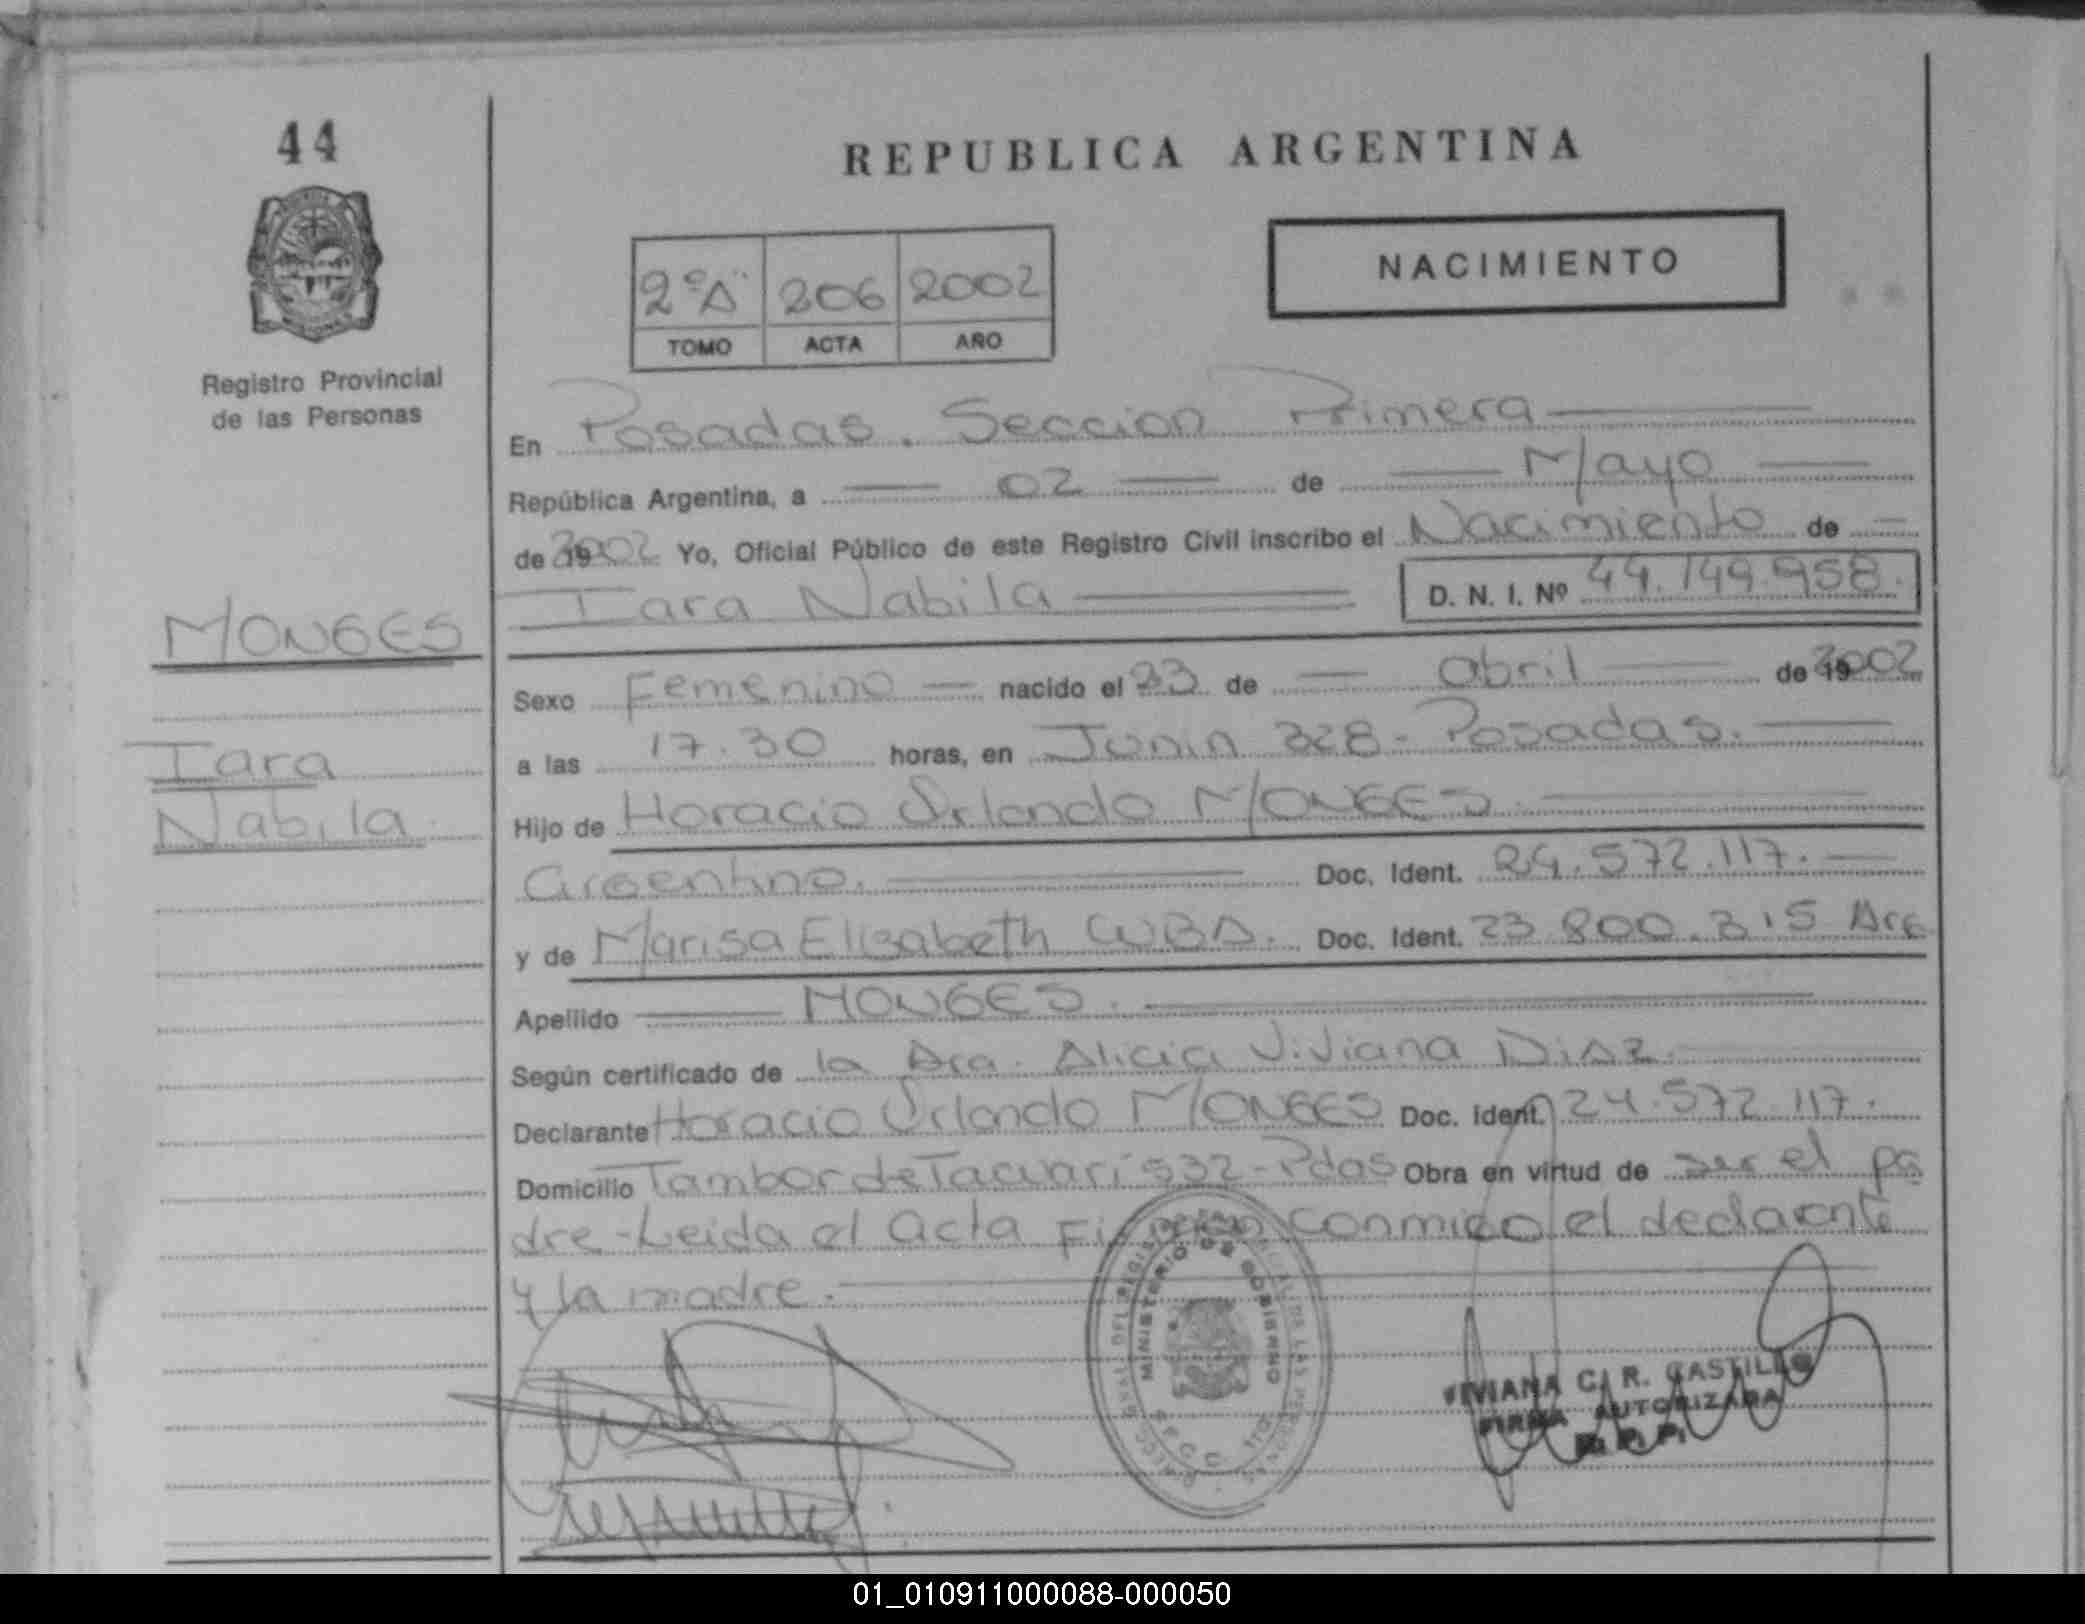 44
REPUBLICA ARGENTINA
NACIMIENTO
2º"A" 206 2002
TOMO ACTA AÑO
Registro Provincial
de las Personas
En Posadas. Seccion Primera
República Argentina, a 02 de Mayo
de 2002 Yo, Oficial Público de este Registro Civil inscribo el Nacimiento de
Iara Nabila D. N. I. Nº 44.149.958.
MONGES
Sexo Femenino nacido el 23 de abril de 2002
Iara
a las 17.30 horas, en Junin 328 - Posadas.
Nabila
Hijo de Horacio Orlando MONGES.
argentino. Doc. Ident. 24.572.117.
y de Marisa Elizabeth CUBA. Doc. Ident. 23.800.315 Arg
Apellido MONGES.
Según certificado de la Dra. Alicia Viviana DIAZ
Declarante Horacio Orlando MONGES Doc. Ident. 24.572.117.
Domicilio Tambor de Tacuari 532 - Pdas Obra en virtud de ser el pa
dre - Leida el acta Firman conmigo el declarante
y la madre.
MINISTERIO DE GOBIERNO
VIVIANA C. R. CASTILLO
FIRMA AUTORIZADA
R. P. P.
01_010911000088-000050